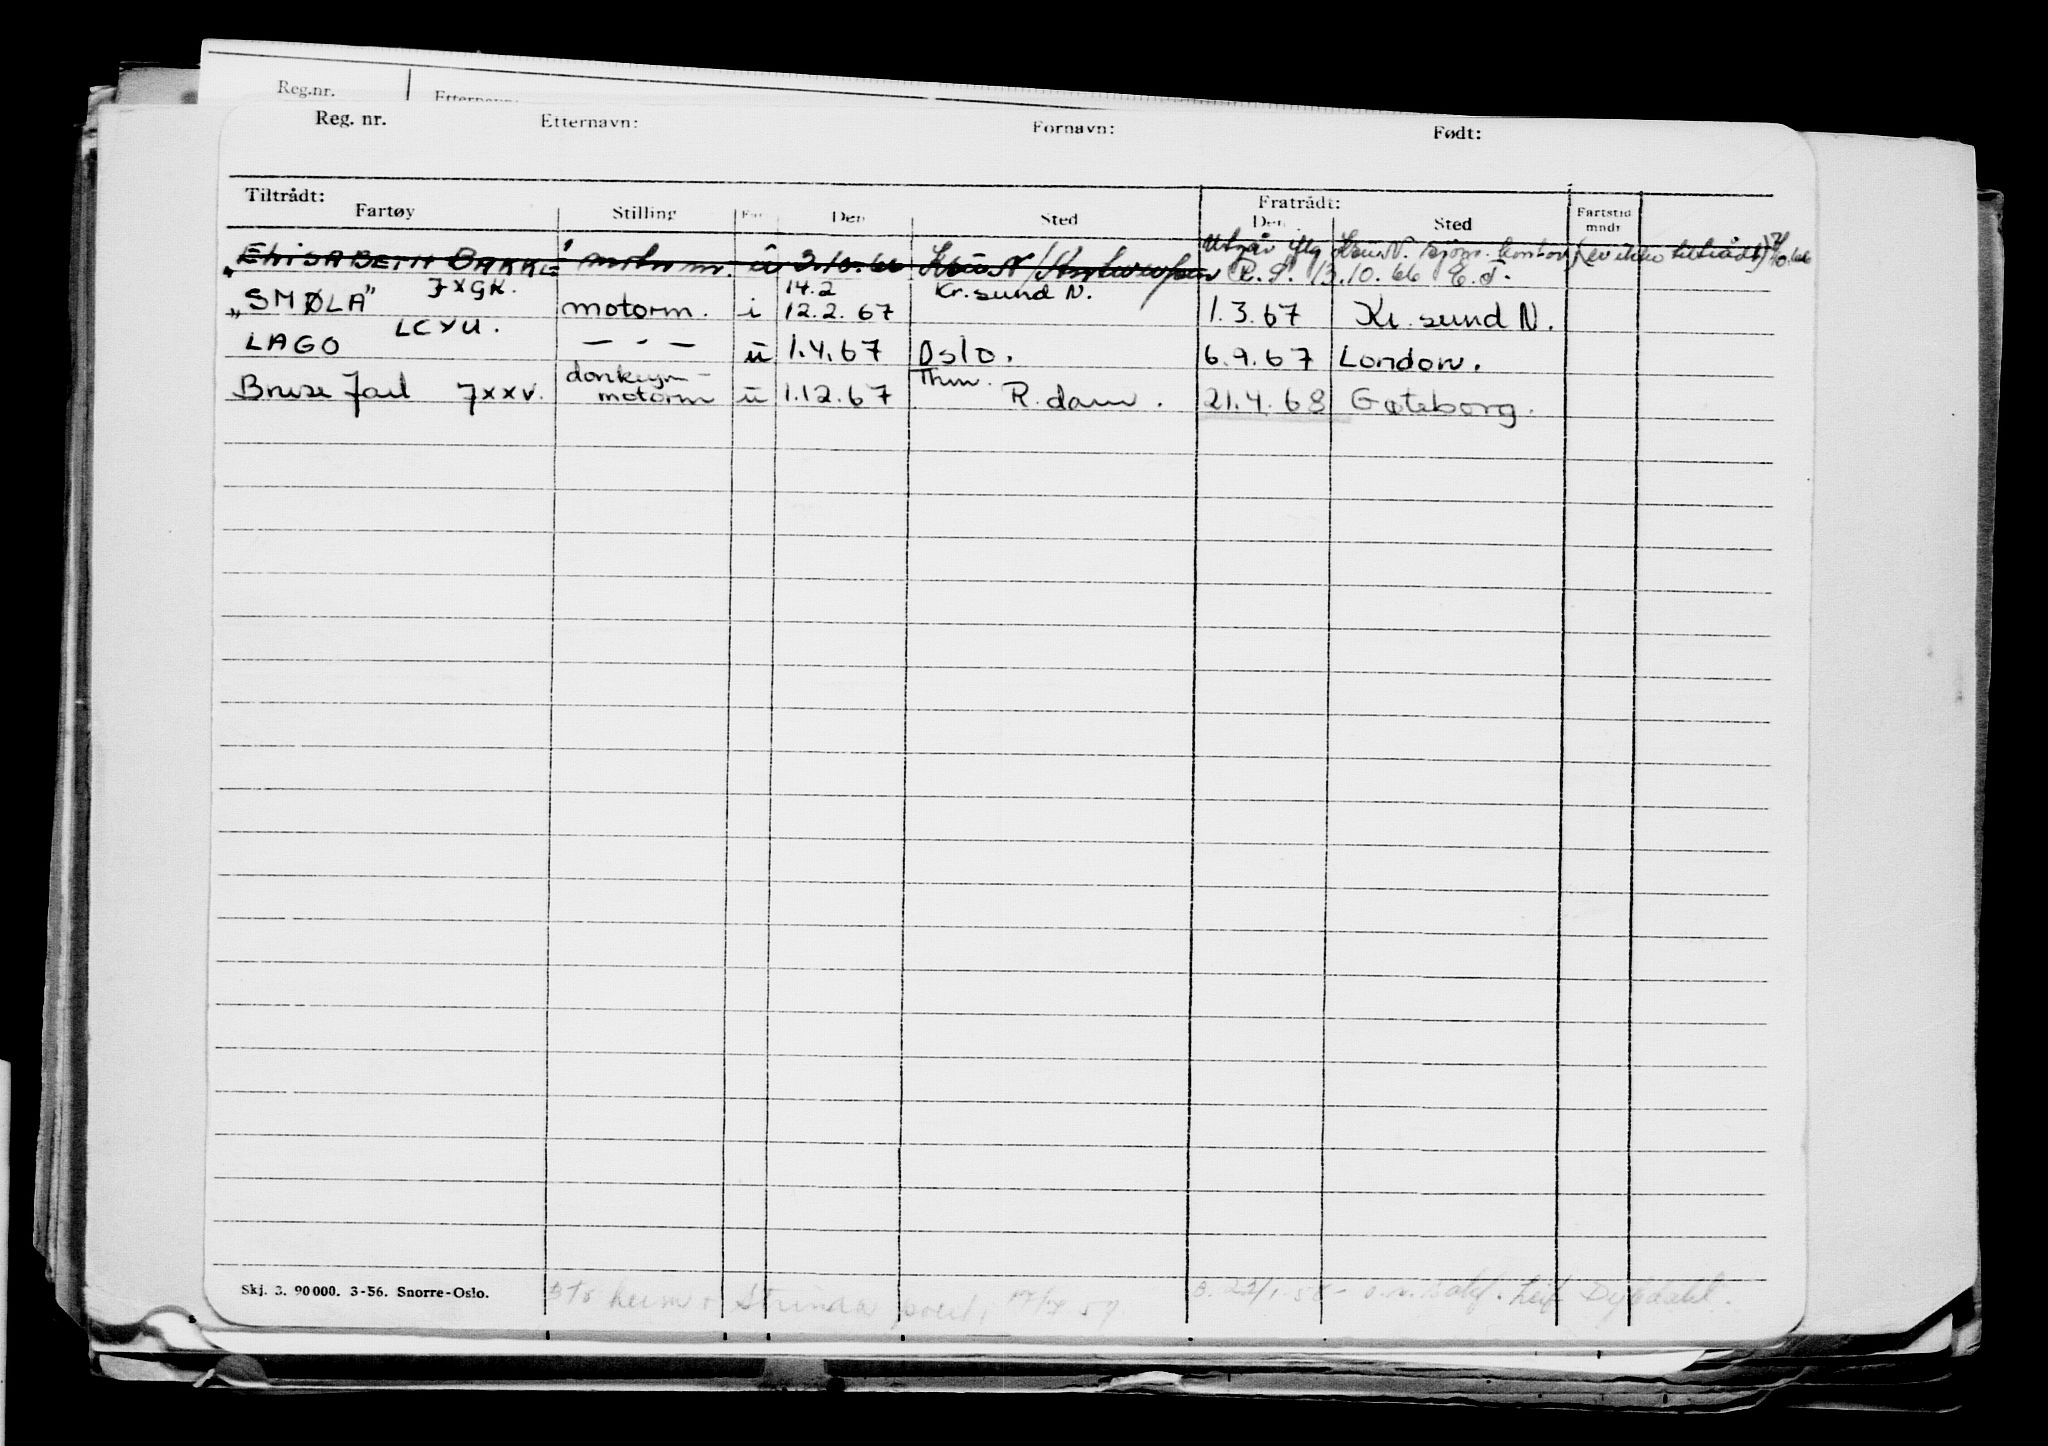 Reg.nr. Etternavn:
Reg. nr. Etternavn: Fornavn: Født:
Tiltrådt: Fratrådt:
Fartøy Stilling Den Sted Den Sted Fartstid mndr
„ELISABETH BAKKE" motorm. ü 3.10.66 Ksu N / Antwerpen Utgår iflg Ksu N. sjøm. kontor (er ikke tiltrådt)
R.S. 13.10.66 E.J.
„SMØLA" JXGK. motorm. i 14.2 12.2.67 Kr.sund N. 1.3.67 Kr. sund N.
LAGO LCXU. — - — ü 1.4.67 Oslo. 6.9.67 London.
Bruse Jarl JXXV. donkeym- motorm ü 1.12.67 Thm. R.dam. 21.4.68 Gøteborg.
Skj. 3. 90 000. 3-56. Snorre-Oslo. Strinda 17/7 57. Leif Dybdahl.